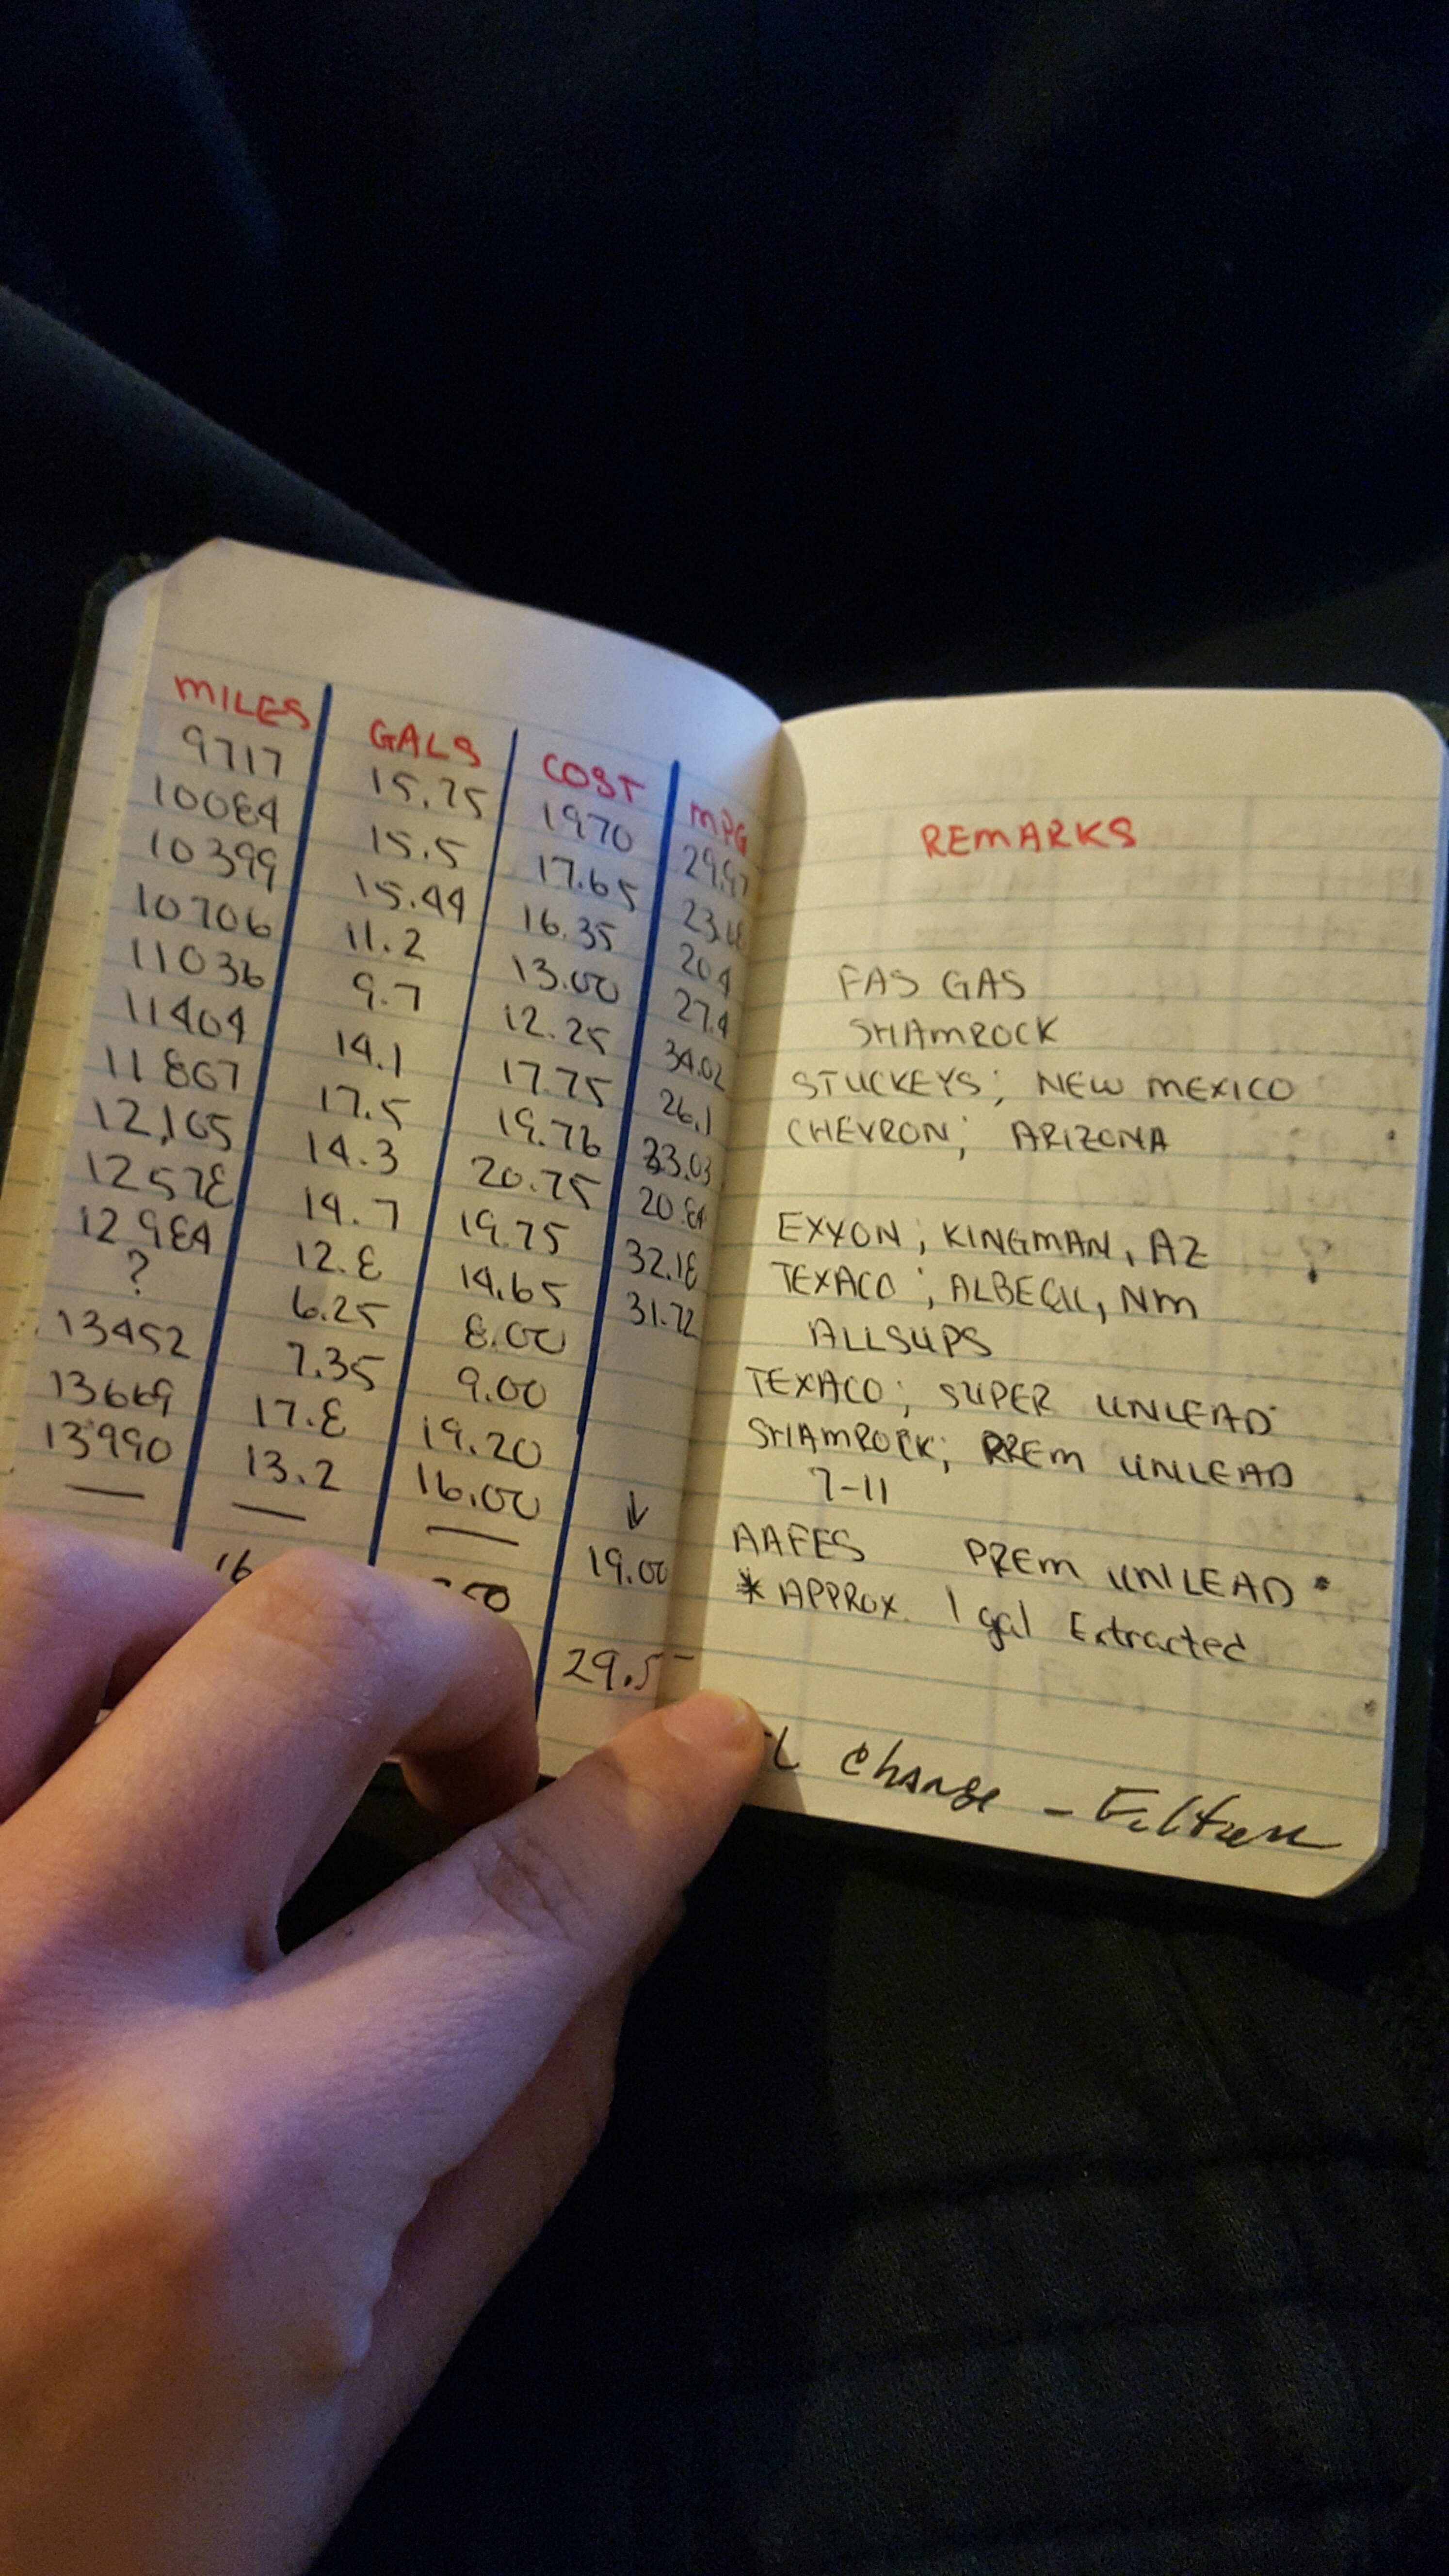 MILES GALS COST MPG
9717 15.75 1970 29.97
10084 15.5 17.65
10399 15.44 16.35 20.4
10706 11.2 13.00 27.4
11036 9.7 12.25 34.02
11404 14.1 17.75 26.1
11867 17.5 19.76 33.03
12,165 14.3 20.75 20.84
12578 14.7 19.75 32.18
12984 12.8 14.65 31.72
? 6.25 8.00
13452 7.35 9.00
13669 17.8 19.20
13990 13.2 16.00 ↓
— — — 19.00
16
29.5
REMARKS
FAS GAS
SHAMROCK
STUCKEYS; NEW MEXICO
CHEVRON; ARIZONA
EXXON; KINGMAN, AZ
TEXACO; NM
ALLSUPS
TEXACO; SUPER UNLEAD
SHAMROCK; PREM UNLEAD
7-11
AAFES PREM UNLEAD *
* APPROX. 1 gal Extracted
Change -